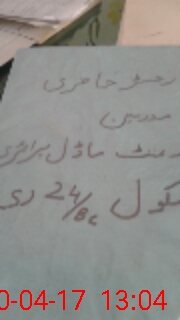 رجسٹر حاضری
مدرسین
رمنٹ ماڈل پرائمری
سکول 24/8c
0-04-17 13:04